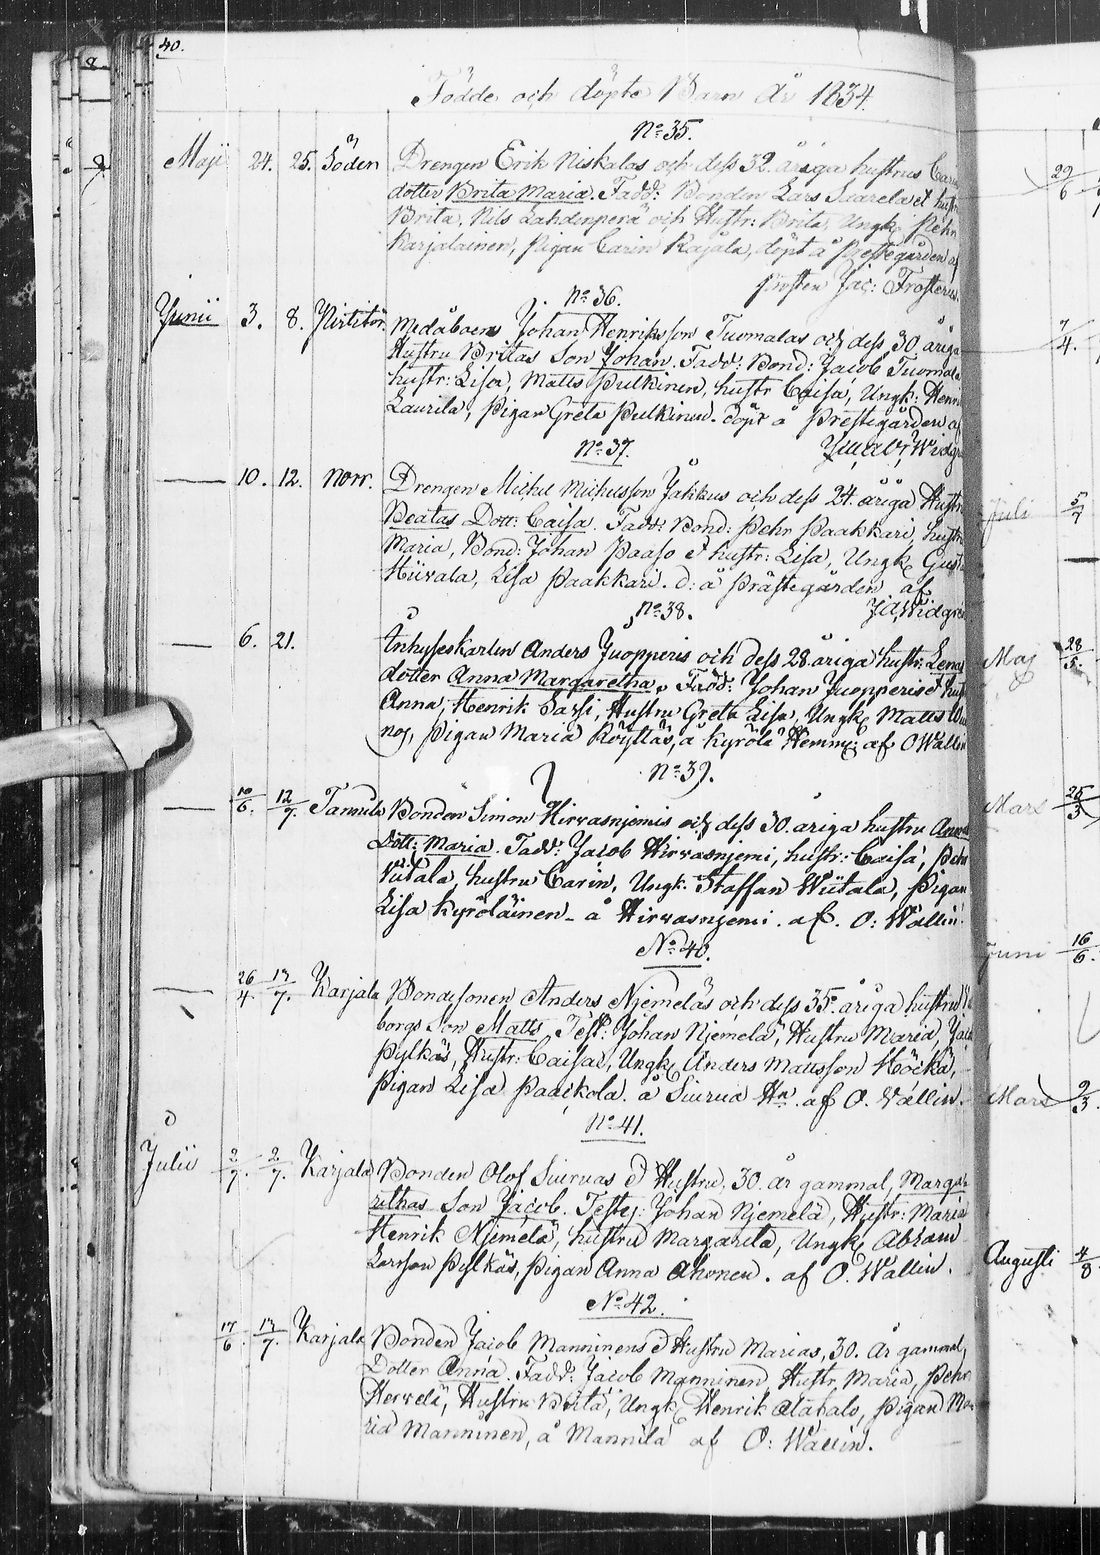 40.
Födde och döpte Barn År 1834.
No 35.
Maji 24. 25. Söder Drengen Erik Niskalas och dess 32. åriga hustrus Carin
dotter Brita Maria. Fadd: Bonden Lars Suarela et hustr
Brita, Nils Lahdenperä och Hustr: Brita, Ungk Pehr
Karjalainen, Pigan Carin Kajala, döpt å Prestegården af
Prosten Jac: Frosterus.
No 36.
Junii 3. 8. Medåboens Johan Henriksson Tuomalas och dess 30 åriga
Hustru Britas Son Johan. Fadd: Bond: Jacob Tuomala
hustr: Lisa, Matts Pulkinen, hustr Caisa, Ungk: Henri
Laurila, Pigan Greta Pulkinen. döpt å Prestegården af
No 37.
10. 12. Norr. Drengen Michel Michelsson Jakkus och dess 24. åriga Hustr:
Beatas Dott: Caisa. Fadd: Bond: Pehr Paakkari, hustr:
Maria, Bond: Johan Paaso & hustr: Lisa, Ungk Gust
Hiivala, Lisa Paakkari. d: å Prästegården af
No 38. Widgre
6. 21. Inhyseskarlen Anders Juopperis och dess 28 åriga hustr: Lenas
dotter Anna Margaretha. Fadd: Johan Juopperis & hust
Anna, Henrik Sassi, Hustru Greta Lisa, Ungk Matts
Pigan Maria Köyttäs, å Kyrölä Hemm: af O Wallin
No 39.
10/6. 12/7. Tannila Bonden Simon Hirvasnjemis och dess 30. åriga hustru Annas
Dott: Maria. Fadd: Jacob Hirvasnjemi, hustr: Caisa, Pehr
Viitala, hustru Carin, Ungk: Staffan Wiitala, Pigan
Lisa Kyröläinen - å Hirvasnjemi. af. O: Wallin.
No 40.
26/4. 13/7. Karjala Bondesonen Anders Njemeläs och dess 35. åriga hustru
borgs Son Matts. Test: Johan Njemelä, Hustru Maria, Jac
Pylkäs, Hustr: Caisa, Ungk Anders Mattsson Höckä,
Pigan Lisa Paackola. å Siurua Hn. af O. Vallin.
No 41.
Julii 2/7. 2/7. Karjala Bonden Olof Siuruas & Hustru, 30. år gammal, Marga-
rethas Son Jacob. Testes: Johan Njemelä, Hustr: Maria
Henrik Njemelä, hustru Margareta, Ungk Abram
Larsson Pylkäs, Pigan Anna Ahonen. af O. Wallin.
No 42.
17/6. 13/7. Karjala Bonden Jacob Manninens & Hustru Marias, 30. År gammal,
Dotter Anna. Fadd: Jacob Manninen, Hustr, Maria, Pehr
Hervelä, Hustru Brita, Ungk Henrik Alatalo, Pigan Ma-
ria Manninen, å Mannila af O: Wallin.
29/6
7/4.
Juli 5/7
Maj 28/5.
Mars 25/3
Juni 16/6.
Mars 9/3
Augusti 4/8